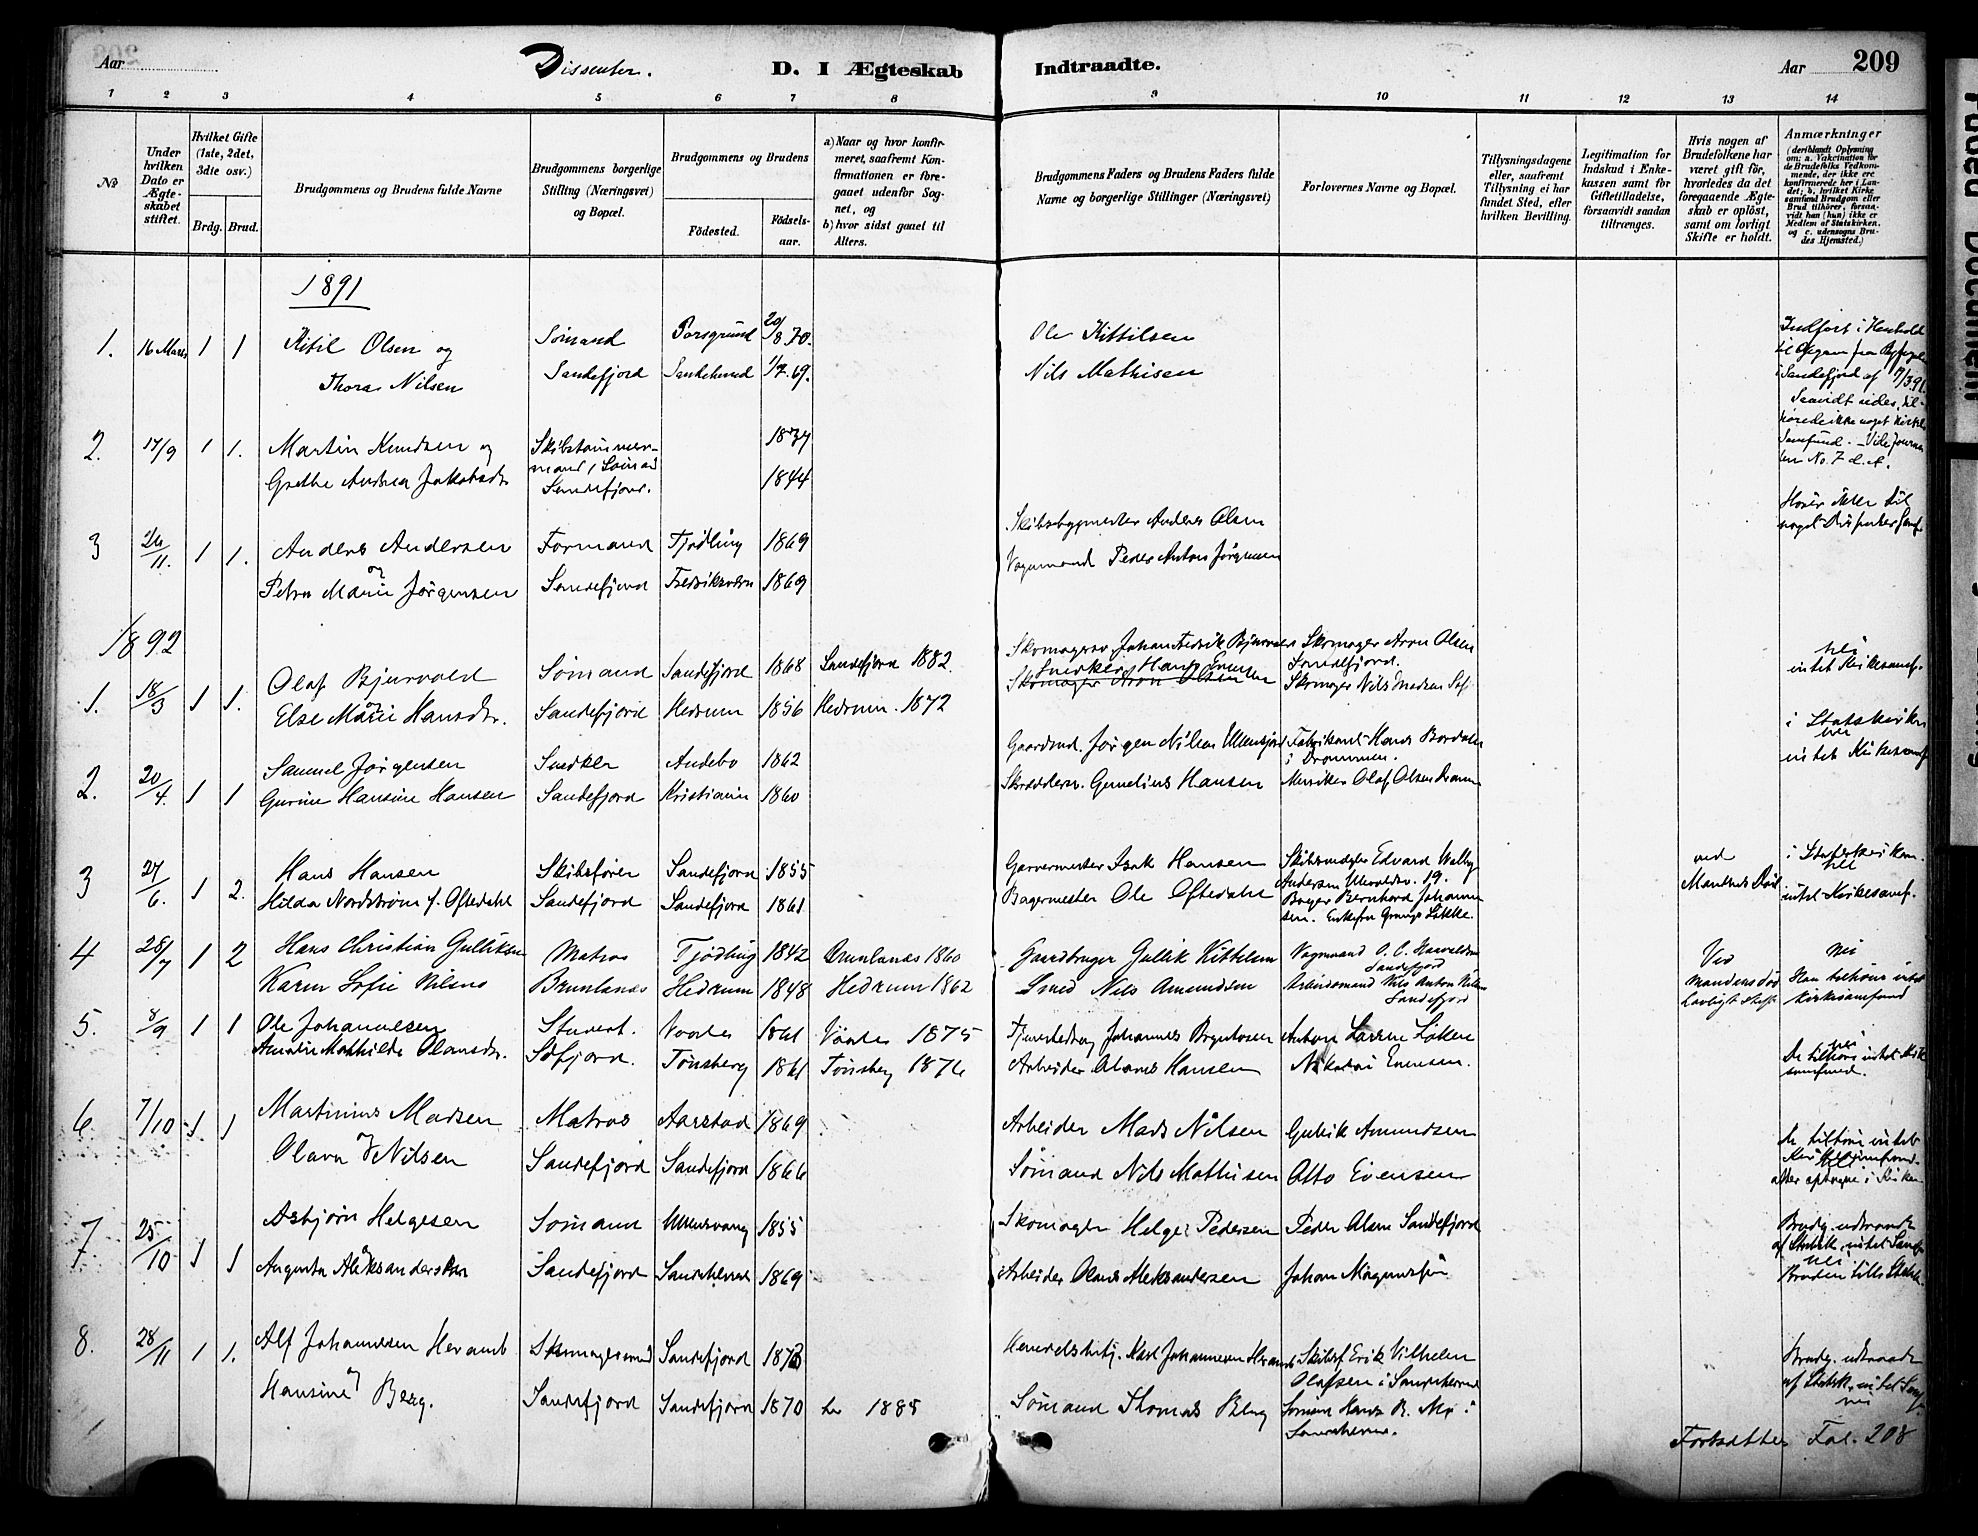 Aar
Dissenter.
D. I Ægteskab
Indtraadte.
Aar
209
1 2 3 4 5 6 7 8 9 10 11 12 13 14
No
Under hvilken Dato er Ægteskabet stiftet.
Hvilket Gifte (1ste, 2det, 3die osv.)
Brdg. Brud.
Brudgommens og Brudens fulde Navne
Brudgommens borgerlige Stilling (Næringsvei) og Bopæl.
Brudgommens og Brudens
Fødested.
Fødsels-aar.
a) Naar og hvor konfirmeret, saafremt Konfirmationen er foregaaet udenfor Sognet, og
b) hvor sidst gaaet til Alters.
Brudgommens Faders og Brudens Faders fulde Navne og borgerlige Stillinger (Næringsvei)
Forlovernes Navne og Bopæl.
Tillysningsdagene eller, saafremt Tillysning ei har fundet Sted, efter hvilken Bevilling.
Legitimation for Indskud i Enkekassen samt for Giftetilladelse, forsaavidt saadan tiltrænges.
Hvis nogen af Brudefolkene har været gift før, hvorledes da det foregaaende Ægteskab er opløst, samt om lovligt Skifte er holdt.
Anmærkninger
(deriblandt Oplysning om: a. Vakcination for de Brudefolks Vedkommende, der ikke ere konfirmerede her i Landet; b. hvilket Kirkesamfund Brudgom eller Brud tilhører, forsaavidt han (hun) ikke er Medlem af Statskirken, og c. udensogns Brudes Hjemsted.)
1891
1. 16 Marts 1 1 Kitil Olsen og Sømand Porsgrund 20/8 70. Ole Kittilsen
Thora Nilsen Sandefjord Sandeherred 1/7. 69. Nils Mathisen
Indført i Henhold til
i Sandefjord af
Saavidt vides, til-
hørede ikke noget Kirke
Samfund. - Vide Journa
len No. 7 d. A.
2. 17/9 1 1. Martin Knudsen og Skibstømmer-
mand, Sømand 1844
Grethe Andrea Jakobsdr Sandefjord.
Hører ikke til
noget
3 26/11. 1 1. Anders Andersen Formand Tjødling 1869 Skibsbygmester Anders Olsen
og
Petra Marie Jørgensen Sandefjord Fredriksværn 1869 Vognmand Peder Anton Jørgensen
1892
1. 18/3 1 1. Olaf Bjurvold Sømand Sandefjord 1868 Sandefjord 1882. Skomager Johan Fredrik Bjurvold Skomager Aron Olsen
Sandefjord.
og
Else Marie Hansdr. Sandefjord Hedrum 1856 Hedrum. 1872 Snedker Hans Evensen
Skomager Aron Olsen Skomager Nils Madsen
nei
intet Kirkesamf.
i Statskirken
2. 20/4. 1 1 Samuel Jørgensen Snedker Andebo 1862 Gaardmd. Jørgen Nilsen Fabrikant Hans Bordalen
i Drammen.
Gurine Hansine Hansen Sandefjord Kristiania 1860 Skrædder Gunelius Hansen Olaf Olsen Dramm
nei
intet Kirkesamf
3 27/6. 1 2. Hans Hansen Skibsfører Sandefjord 1855 Garvermester Isak Hansen Skibsmægler Edvard Welby
Andersen Ullevoldsv. 19.
Hilda Nordstrøm f. Oftedahl Sandefjord Sandefjord 1861 Bagermester Ole Oftedahl Bager Bernhard Johann
sen.
ved
Mandens Død
i Statskirken.
nei
intet Kirkesamf.
4 28/7 1 2 Hans Christian Gulliksen Matros Tjødling 1842 Brunlanæs 1860 Gaardbruger Gullik Kittelsen Vognmand O. C.
Sandefjord
Karen Sofie Nilsen Brunlanæs Hedrum 1848 Hedrum 1862 Smed Nils Amundsen Arbeidsmand Nils Anton Nilsen
Sandefjord
Ved
Mandens Død
Lovligt Skifte
nei
Han tilhører intet
Kirkesamfund
5. 8/9 1 1 Ole Johannesen Stuvert. Vaale 1861 Vaale 1875 Johannes Anton Larsen Løken
Amalie Mathilde Olausdr. Sdfjord. Tønsberg 1861 Tønsberg 1876 Arbeider Olaus Hansen Nikolai Evensen.
nei
De tilhører intet Kirke
samfund.
6. 7/10 1 1 Martinius Madsen Matros Aarstad 1869 Arbeider Mads Nilsen Gulrik Amundsen
og
Olava Nilsen Sandefjord Sandefjord 1866 Sømand Nils Mathisen Otto Evensen
De tilhører intet
Kirkesamfund.
nei
atter optagne i Kirken
7. 25/10 1 1 Asbjørn Helgesen Sømand Ullensvang 1855 Skomager Helge Pedersen Peder Olsen Sandefjord
Augusta Aleksandersen Sandefjord Sandeherred 1869 Arbeider Olaus Aleksandersen Johan Magnussøn
Brudg. udtraadt
af Statsk., intet Samf.
nei
Bruden tilh. Statsk.
8. 28/11 1 1. Alf Johannessen Heramb Skomagersvend Sandefjord 1873 Karl Johannesen Heramb Skibsf Erik Vilhelm
Olafsen i Sandeherred
og
Hansine Berg. Sandefjord Sandefjord 1870 her 1885 Sømand Thomas Berg Sømand Hans B. Mo i
Sandeherred.
Brudg. udtraadt
af Statsk., intet Samf
nei
Fortsættes Fol. 208